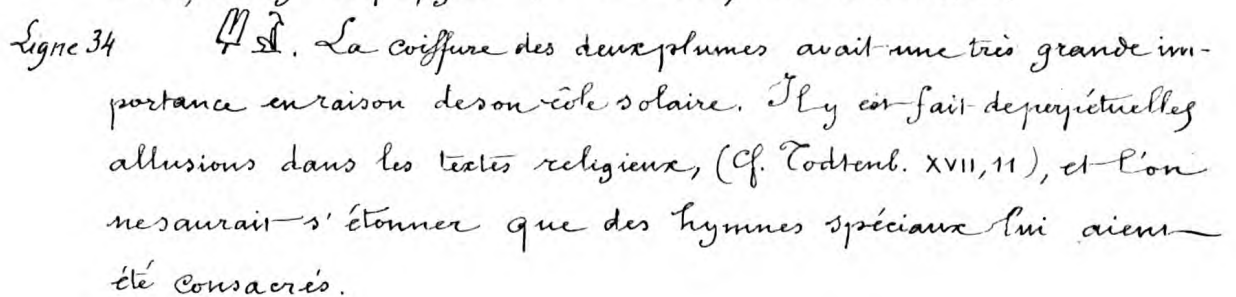 Ligne 34 . La coiffure des deux plumes avait une très grande im-
portance en raison de son rôle solaire. Il y est fait de perpétuelles
allusions dans les textes religieux, (Cf. Todtenb. XVII, 11), et l'on
ne saurait s'étonner que des hymnes spéciaux lui aient
été consacrés.